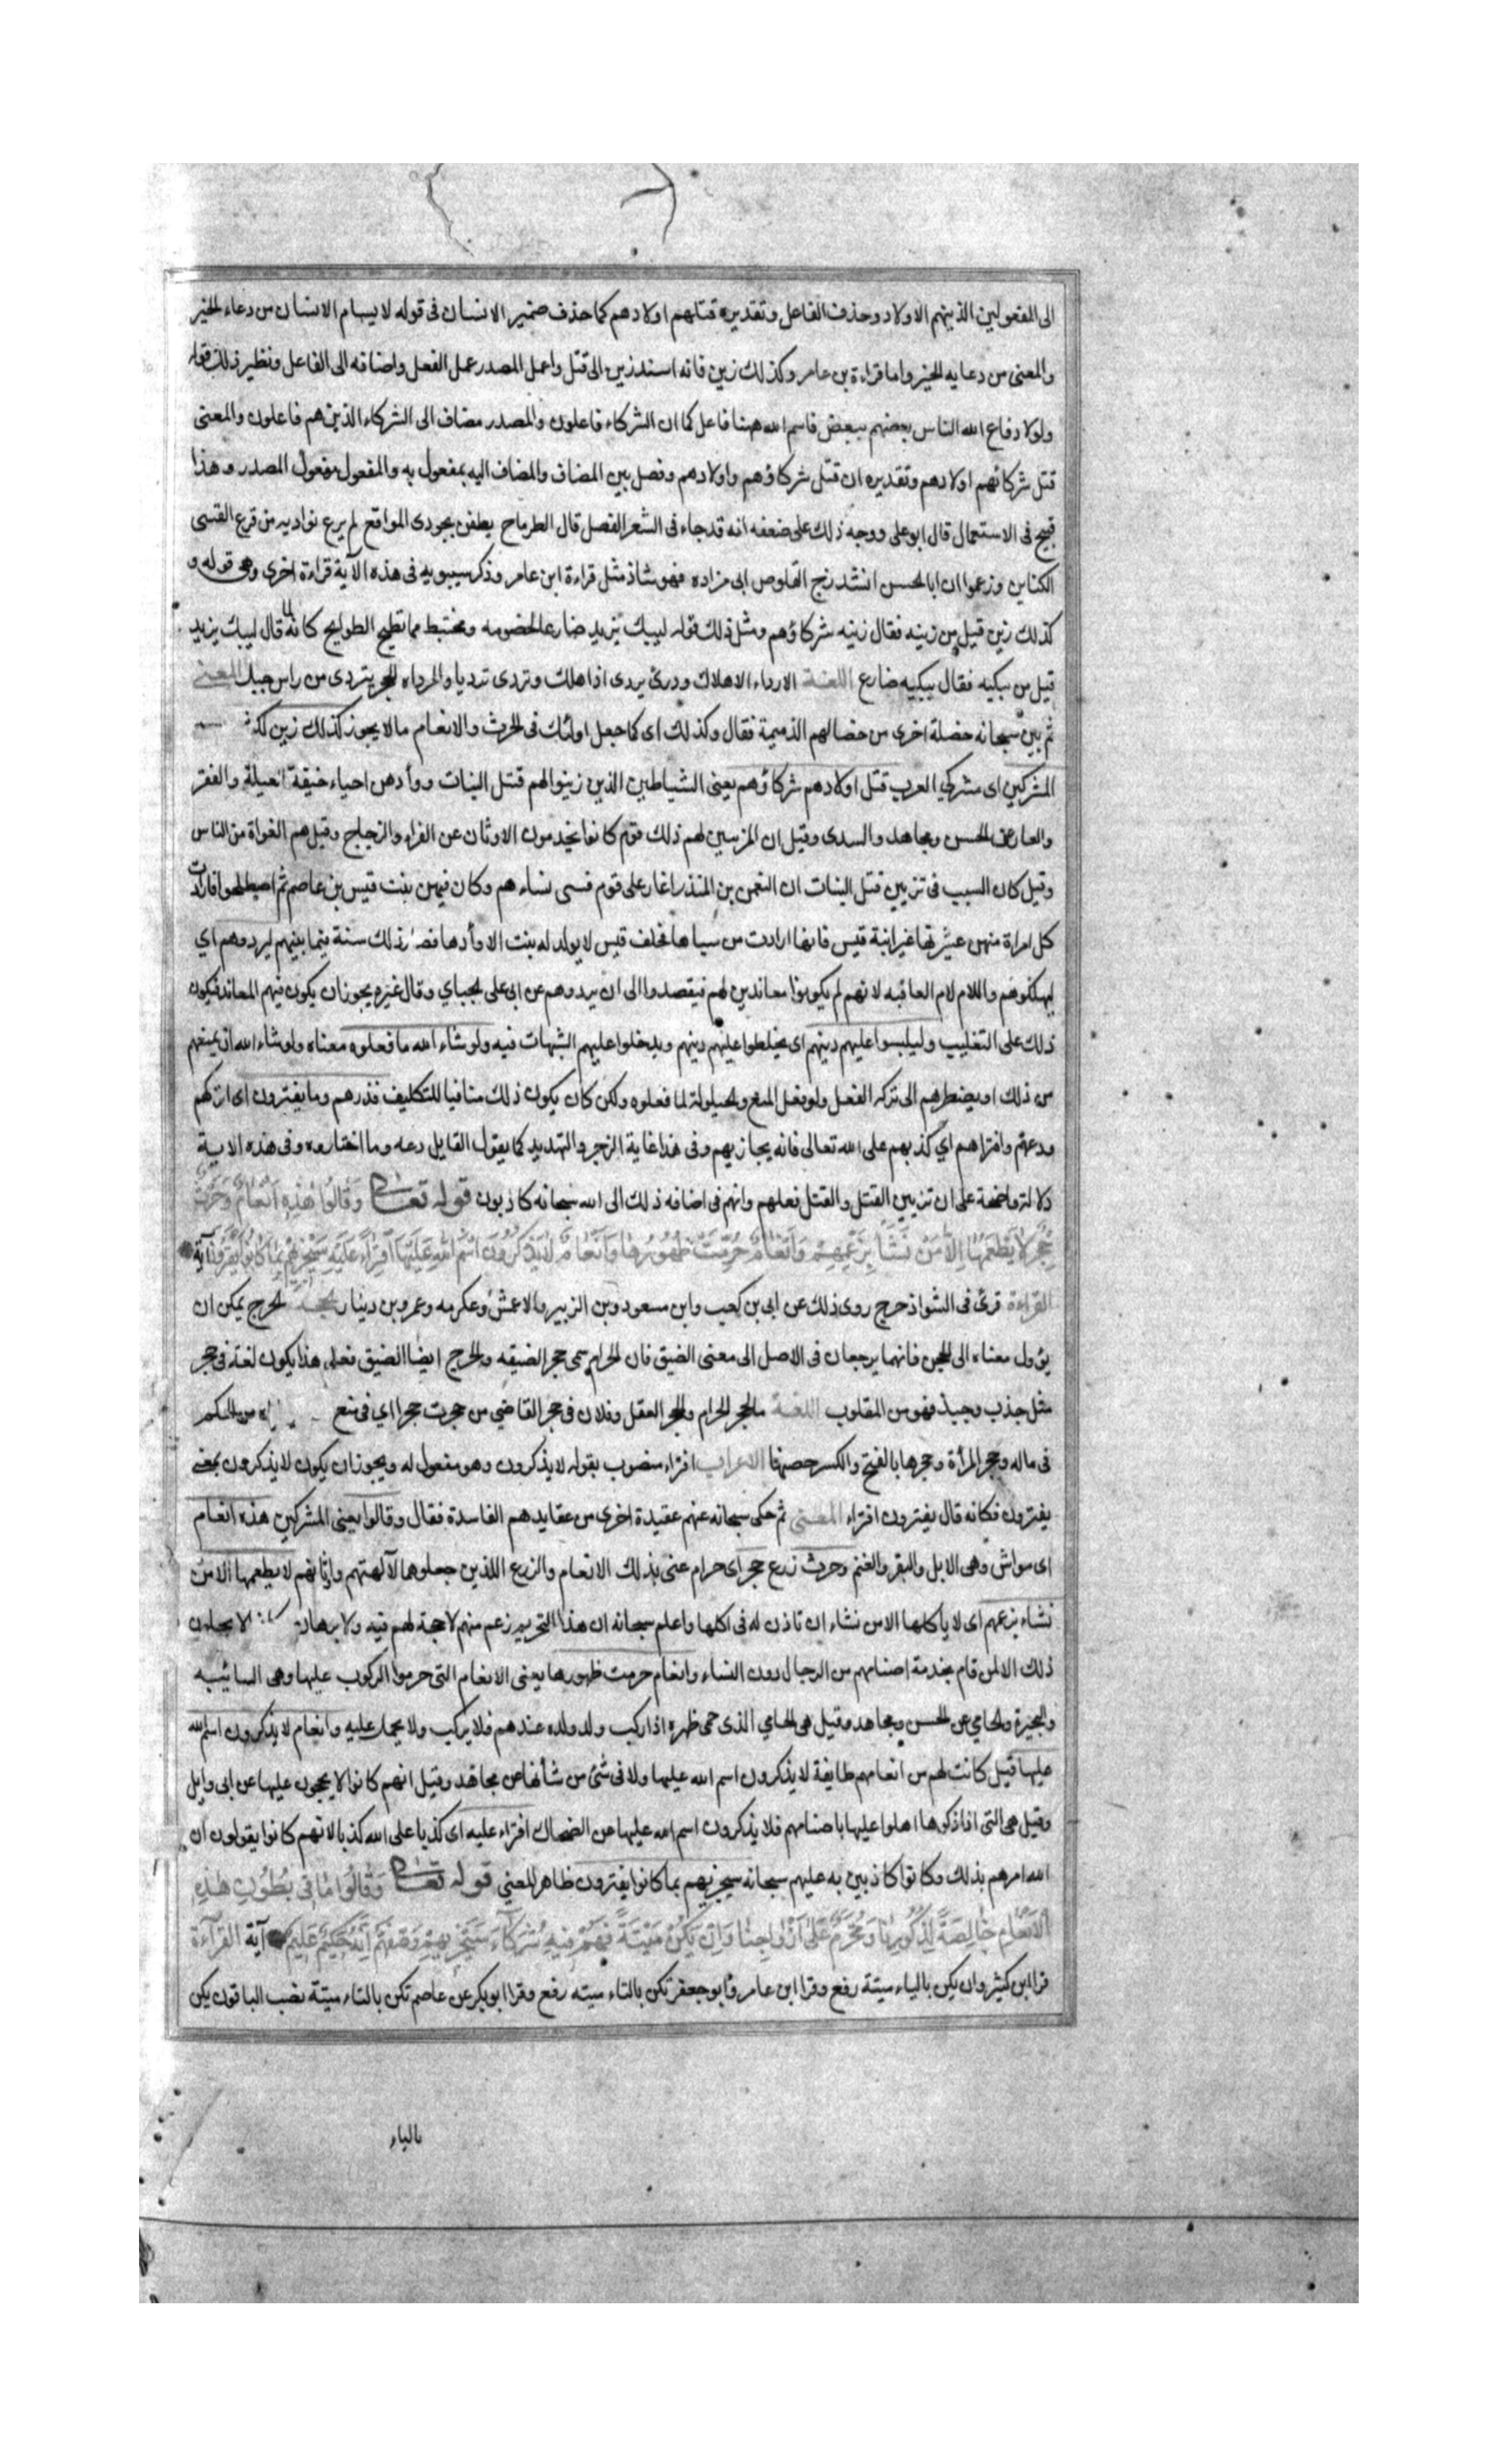 الى المفعولين الذينهم الاولاد وحذف الفاعل وتقديره قتلهم اولادهم كما حذف ضمير الانسان فى قوله لا يسام الانسان من دعاء الخير
والمعنى من دعايه الخير واما قراءة بن عامر وكذلك زين فانه اسند زين الى قتل واعمل المصدر عمل الفعل واضافه الى الفاعل ونظير ذلك قوله
ولولا دفاع الله الناس بعضهم ببعض فاسم الله ههنا فاعل كما ان الشركاء فاعلون والمصدر مضاف الى الشركاء الذينهم فاعلون والمعنى
قتل شركائهم اولادهم وتقديره ان قتل شركاؤهم واولادهم وفصل بين المضاف والمضاف اليه بمفعول به والمفعول مفعول المصدر وهذا
قبيح فى الاستعمال قال ابو على ووجه ذلك على ضعفه انه قد جاء فى الشعر الفصل قال الطرماح يطفن بحوذى المواقع لم يرع بواديه من قرع القسى
الكناين وزعموا ان ابا الحسن انشد زج القلوص ابى مزاده فهو شاذ مثل قراءة ابن عامر وذكر سيبويه فى هذه الآية قراءة اخرى وهى قوله و
كذلك زين قيل من زينه فقال زينه شركاؤهم ومثل ذلك قوله ليبك يزيد ضارع لخصومه ومختبط مما تطيح الطوايح كانه لما قال ليبك يزيد
قيل من يبكيه فقال يبكيه ضارع اللغة الارداء الاهلاك وردى يردى اذا هلك وتردى ترديا والمرداه الحجر يتردى من راس جبل المعنى
ثم بين سبحانه خصلة اخرى من خصالهم الذميمة فقال وكذلك اى كما جعل اولئك فى الحرث والانعام ما لا يجوز كذلك زين
المشركين اى مشركى العرب قتل اولادهم شركاؤهم يعنى الشياطين الذين زينوا لهم قتل البنات ووأدهن احياء خيفة العيلة والفقر
والعار عن الحسن ومجاهد والسدى وقيل ان المزينين لهم ذلك قوم كانوا يخدمون الاوثان عن الفراء والزجاج وقيل هم الغواة من الناس
وقيل كان السبب فى تزيين قتل البنات ان النعمن بن المنذر اغار على قوم فسبى نساءهم وكان فيهن بنت قيس بن عاصم ثم اصطلحوا فارادت
كل امراة منهن عشيرتها غير ابنة قيس فانها ارادت من سباها فحلف قيس لا يولد له بنت الا وأدها فصار ذلك سنة فيما بينهم ليردوهم اي
ليهلكوهم واللام لام العاقبه لانهم لم يكونوا معاندين لهم فيقصدوا الى ان يردوهم عن ابى على الجباي وقال غيره يجوز ان يكون فيهم المعاند فيكون
ذلك على التغليب وليلبسوا عليهم دينهم اى يخلطوا عليهم دينهم ويدخلوا عليهم الشبهات فيه ولو شاء الله ما فعلوه معناه ولو شاء الله ان يمنعهم
من ذلك او يضطرهم الى تركه لفعل ولو فعل المنع والحيلولة لما فعلوه ولكن كان يكون ذلك منافيا للتكليف فذرهم وما يفترون اى اتركهم
ودعهم وافتراهم اي كذبهم على الله تعالى فانه يجازيهم وفى هذا غاية الزجر والتهديد كما يقول القايل دعه وما اختاره وفى هذه الاية
دلالة واضحة على ان تزيين القتل والقتل فعلهم وانهم فى اضافه ذلك الى الله سبحانه كاذبون قوله تعالى وَقَالُوا هٰذِهِ اَنْعَامٌ وَحَرْثٌ
حِجْرٌ لَا يَطْعَمُهَا اِلَّا مَنْ نَشَاءُ بِزَعْمِهِمْ وَاَنْعَامٌ حُرِّمَتْ ظُهُورُهَا وَاَنْعَامٌ لَا يَذْكُرُونَ اسْمَ اللهِ عَلَيْهَا افْتِرَاءً عَلَيْهِ سَيَجْزِيهِمْ بِمَا كَانُوا يَفْتَرُونَ آية
القراءة قرئ فى الشواذ حرج روى ذلك عن ابى بن كعب وابن مسعود وبن الزبير والاعمش وعكرمه وعمرو بن دينار الحجة الحرج يمكن ان
يؤول معناه الى الحجر فانهما يرجعان فى الاصل الى معنى الضيق فان الحرام سمى حجر الضيقه والحرج ايضا الضيق فعلى هذا يكون لغة فى حجر
مثل جذب وجبذ فهو من المقلوب اللغة الحجر الحرام والحجر العقل وفلان فى حجر القاضي من حجرت حجرا اي فى منع
فى ماله وحجر المرأة وحجرها بالفتح والكسر حصنها الاعراب افتراء منصوب بقوله لا يذكرون وهو مفعول له ويجوز ان يكون لا يذكرون بمعنى
يفترون فكانه قال يفترون افتراء المعنى ثم حكى سبحانه عنهم عقيدة اخرى من عقايدهم الفاسدة فقال وقالوا يعنى المشركين هذه انعام
اى مواش وهى الابل والبقر والغنم وحرث زرع حجر اى حرام عنى بذلك الانعام والزرع اللذين جعلوها لآلهتهم واوثانهم لا يطعمها الا من
نشاء بزعمهم اى لا ياكلها الا من نشاء ان ناذن له فى اكلها واعلم سبحانه ان هذا التحريم زعم منهم لا حجة لهم فيه ولا برهان لا يحلون
ذلك الا لمن قام بخدمة اصنامهم من الرجال دون النساء وانعام حرمت ظهورها يعنى الانعام التى حرموا الركوب عليها وهى السائبه
والبحيرة والحامي عن الحسن ومجاهد وقيل هى الحامي الذى حمى ظهره اذا ركب ولد ولده عندهم فلا يركب ولا يحمل عليه وانعام لا يذكرون اسم الله
عليها قيل كانت لهم من انعامهم طايفة لا يذكرون اسم الله عليها ولا فى شئ من شأنها عن مجاهد وقيل انهم كانوا لا يحجون عليها عن ابى وايل
وقيل هى التى اذا ذكوها اهلوا عليها باصنامهم فلا يذكرون اسم الله عليها عن الضحاك افتراء عليه اى كذبا على الله كذبا لانهم كانوا يقولون ان
الله امرهم بذلك وكانوا كاذبين به عليهم سبحانه سيجزيهم بما كانوا يفترون ظاهر المعنى قوله تعالى وَقَالُوا مَا فِى بُطُونِ هٰذِهِ
الْاَنْعَامِ خَالِصَةٌ لِذُكُورِنَا وَمُحَرَّمٌ عَلٰى اَزْوَاجِنَا وَاِنْ يَكُنْ مَيْتَةً فَهُمْ فِيهِ شُرَكَاءُ سَيَجْزِيهِمْ وَصْفَهُمْ اِنَّهُ حَكِيمٌ عَلِيمٌ آية القرآءة
قرا ابن كثير وان يكن بالياء ميتة رفع وقرا ابن عامر وابو جعفر تكن بالتاء ميته رفع وقرا ابو بكر عن عاصم تكن بالتاء ميتة نصب الباقون يكن
بالياء